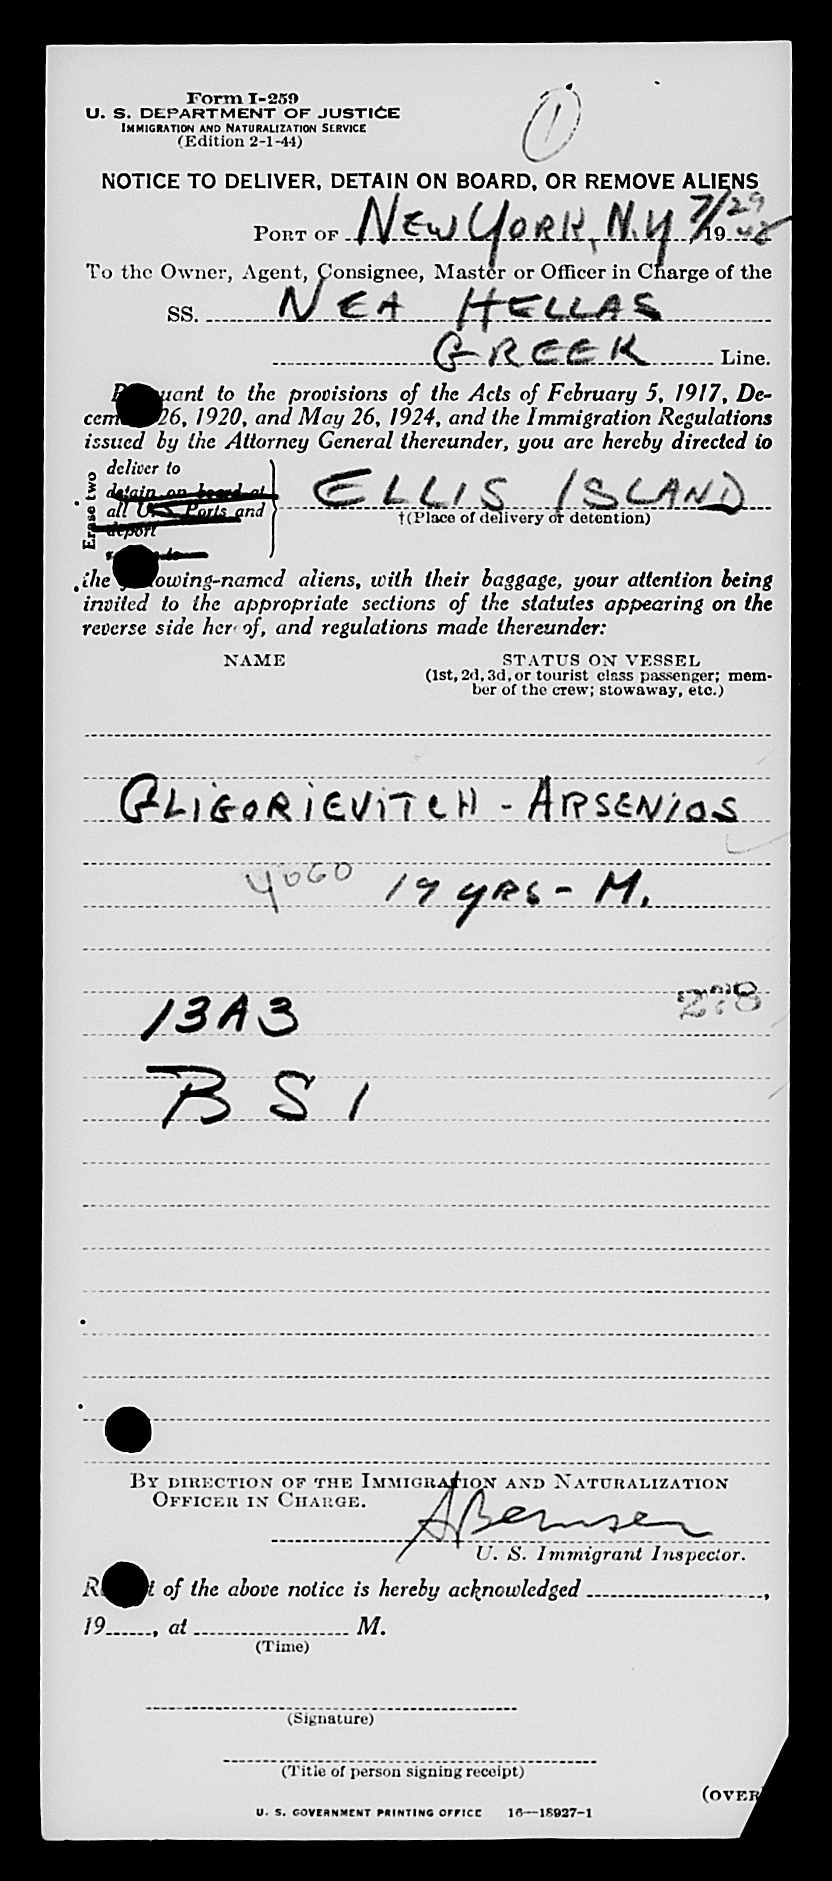 Form I-259
U. S. DEPARTMENT OF JUSTICE
IMMIGRATION AND NATURALIZATION SERVICE
(Edition 2-1-44)
1
NOTICE TO DELIVER, DETAIN ON BOARD, OR REMOVE ALIENS
PORT OF NEW YORK, N.Y 7/29, 1948
To the Owner, Agent, Consignee, Master or Officer in Charge of the
SS. NEA HELLAS
GREEK Line.
Pursuant to the provisions of the Acts of February 5, 1917, De-
cember 26, 1920, and May 26, 1924, and the Immigration Regulations
issued by the Attorney General thereunder, you are hereby directed to
Erase two
deliver to
detain on board at
all U. S. Ports and
deport
ELLIS ISLAND
†(Place of delivery or detention)
the following-named aliens, with their baggage, your attention being
invited to the appropriate sections of the statutes appearing on the
reverse side hereof, and regulations made thereunder:
NAME STATUS ON VESSEL
(1st, 2d, 3d, or tourist class passenger; mem-
ber of the crew; stowaway, etc.)
GLIGORIEVITCH - ARSENIOS
YUGO 19 YRS - M.
13A3
278
BSI
BY DIRECTION OF THE IMMIGRATION AND NATURALIZATION
OFFICER IN CHARGE.
U. S. Immigrant Inspector.
Receipt of the above notice is hereby acknowledged ,
19 , at M.
(Time)
(Signature)
(Title of person signing receipt)
(OVER)
U. S. GOVERNMENT PRINTING OFFICE 16—18927-1